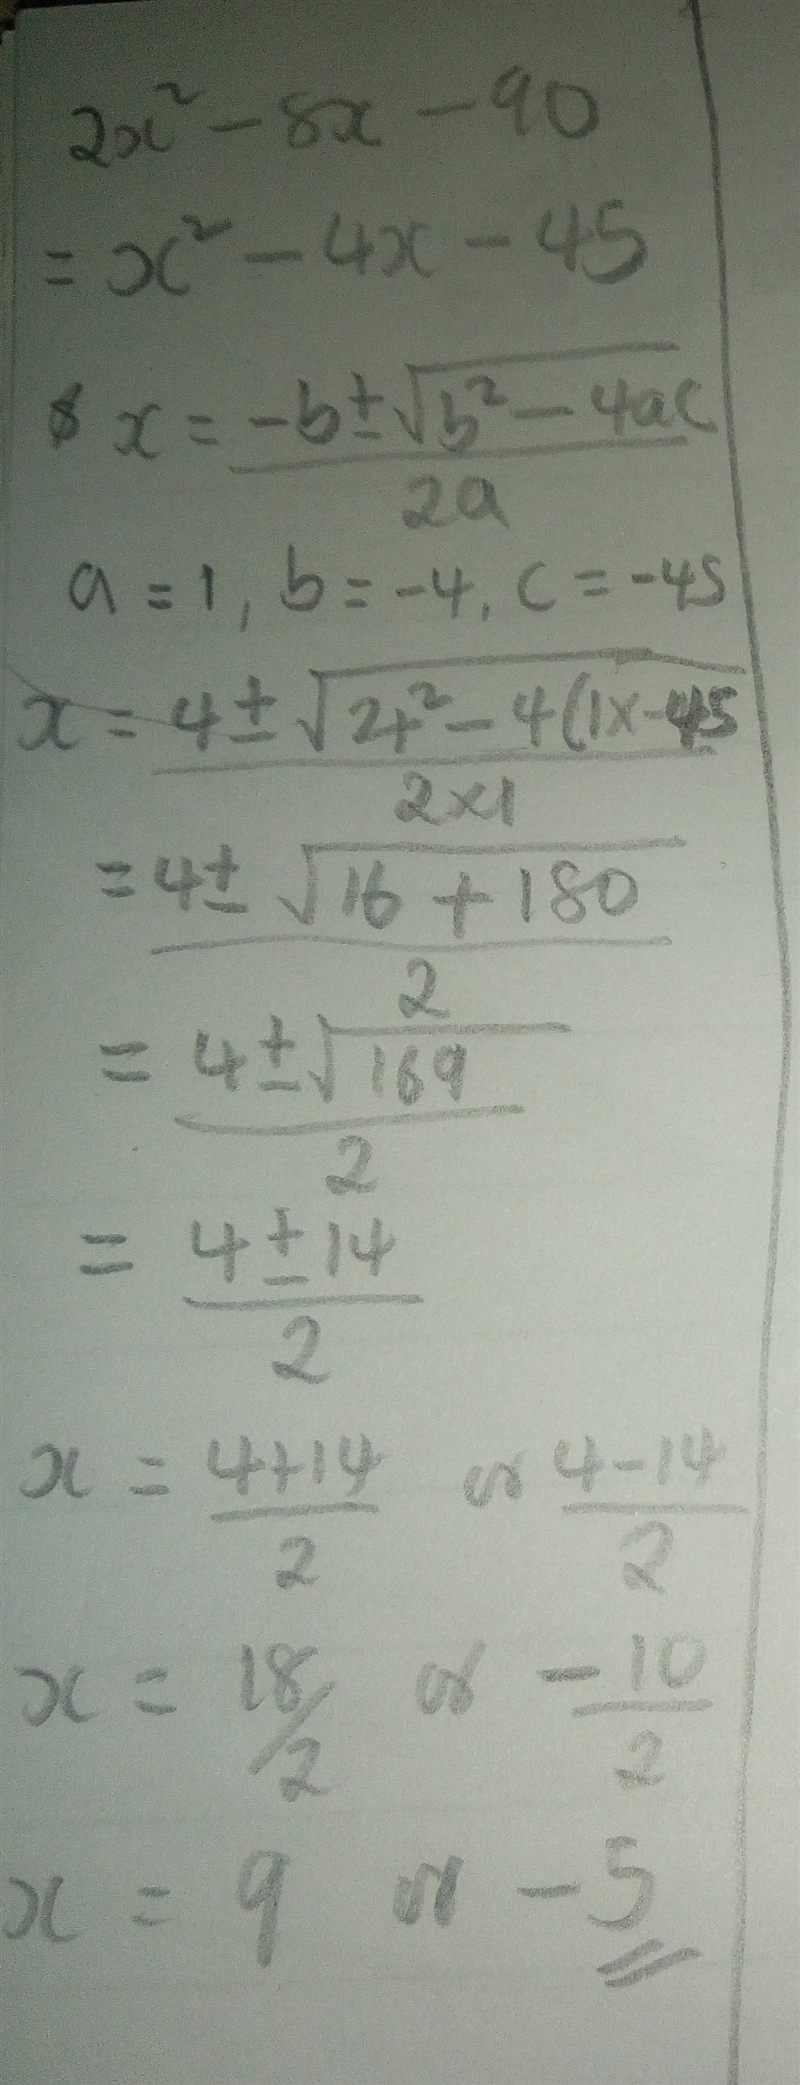 2x² - 8x - 90
= x² - 4x - 45
x = -b ± √b² - 4ac
2a
a = 1, b = -4, c = -45
x = 4 ± √24² - 4(1x-45
2x1
= 4 ± √16 + 180
2
= 4 ± √169
2
= 4 ± 14
2
x = 4+14 or 4-14
2 2
x = 18/2 or -10
2
x = 9 or -5